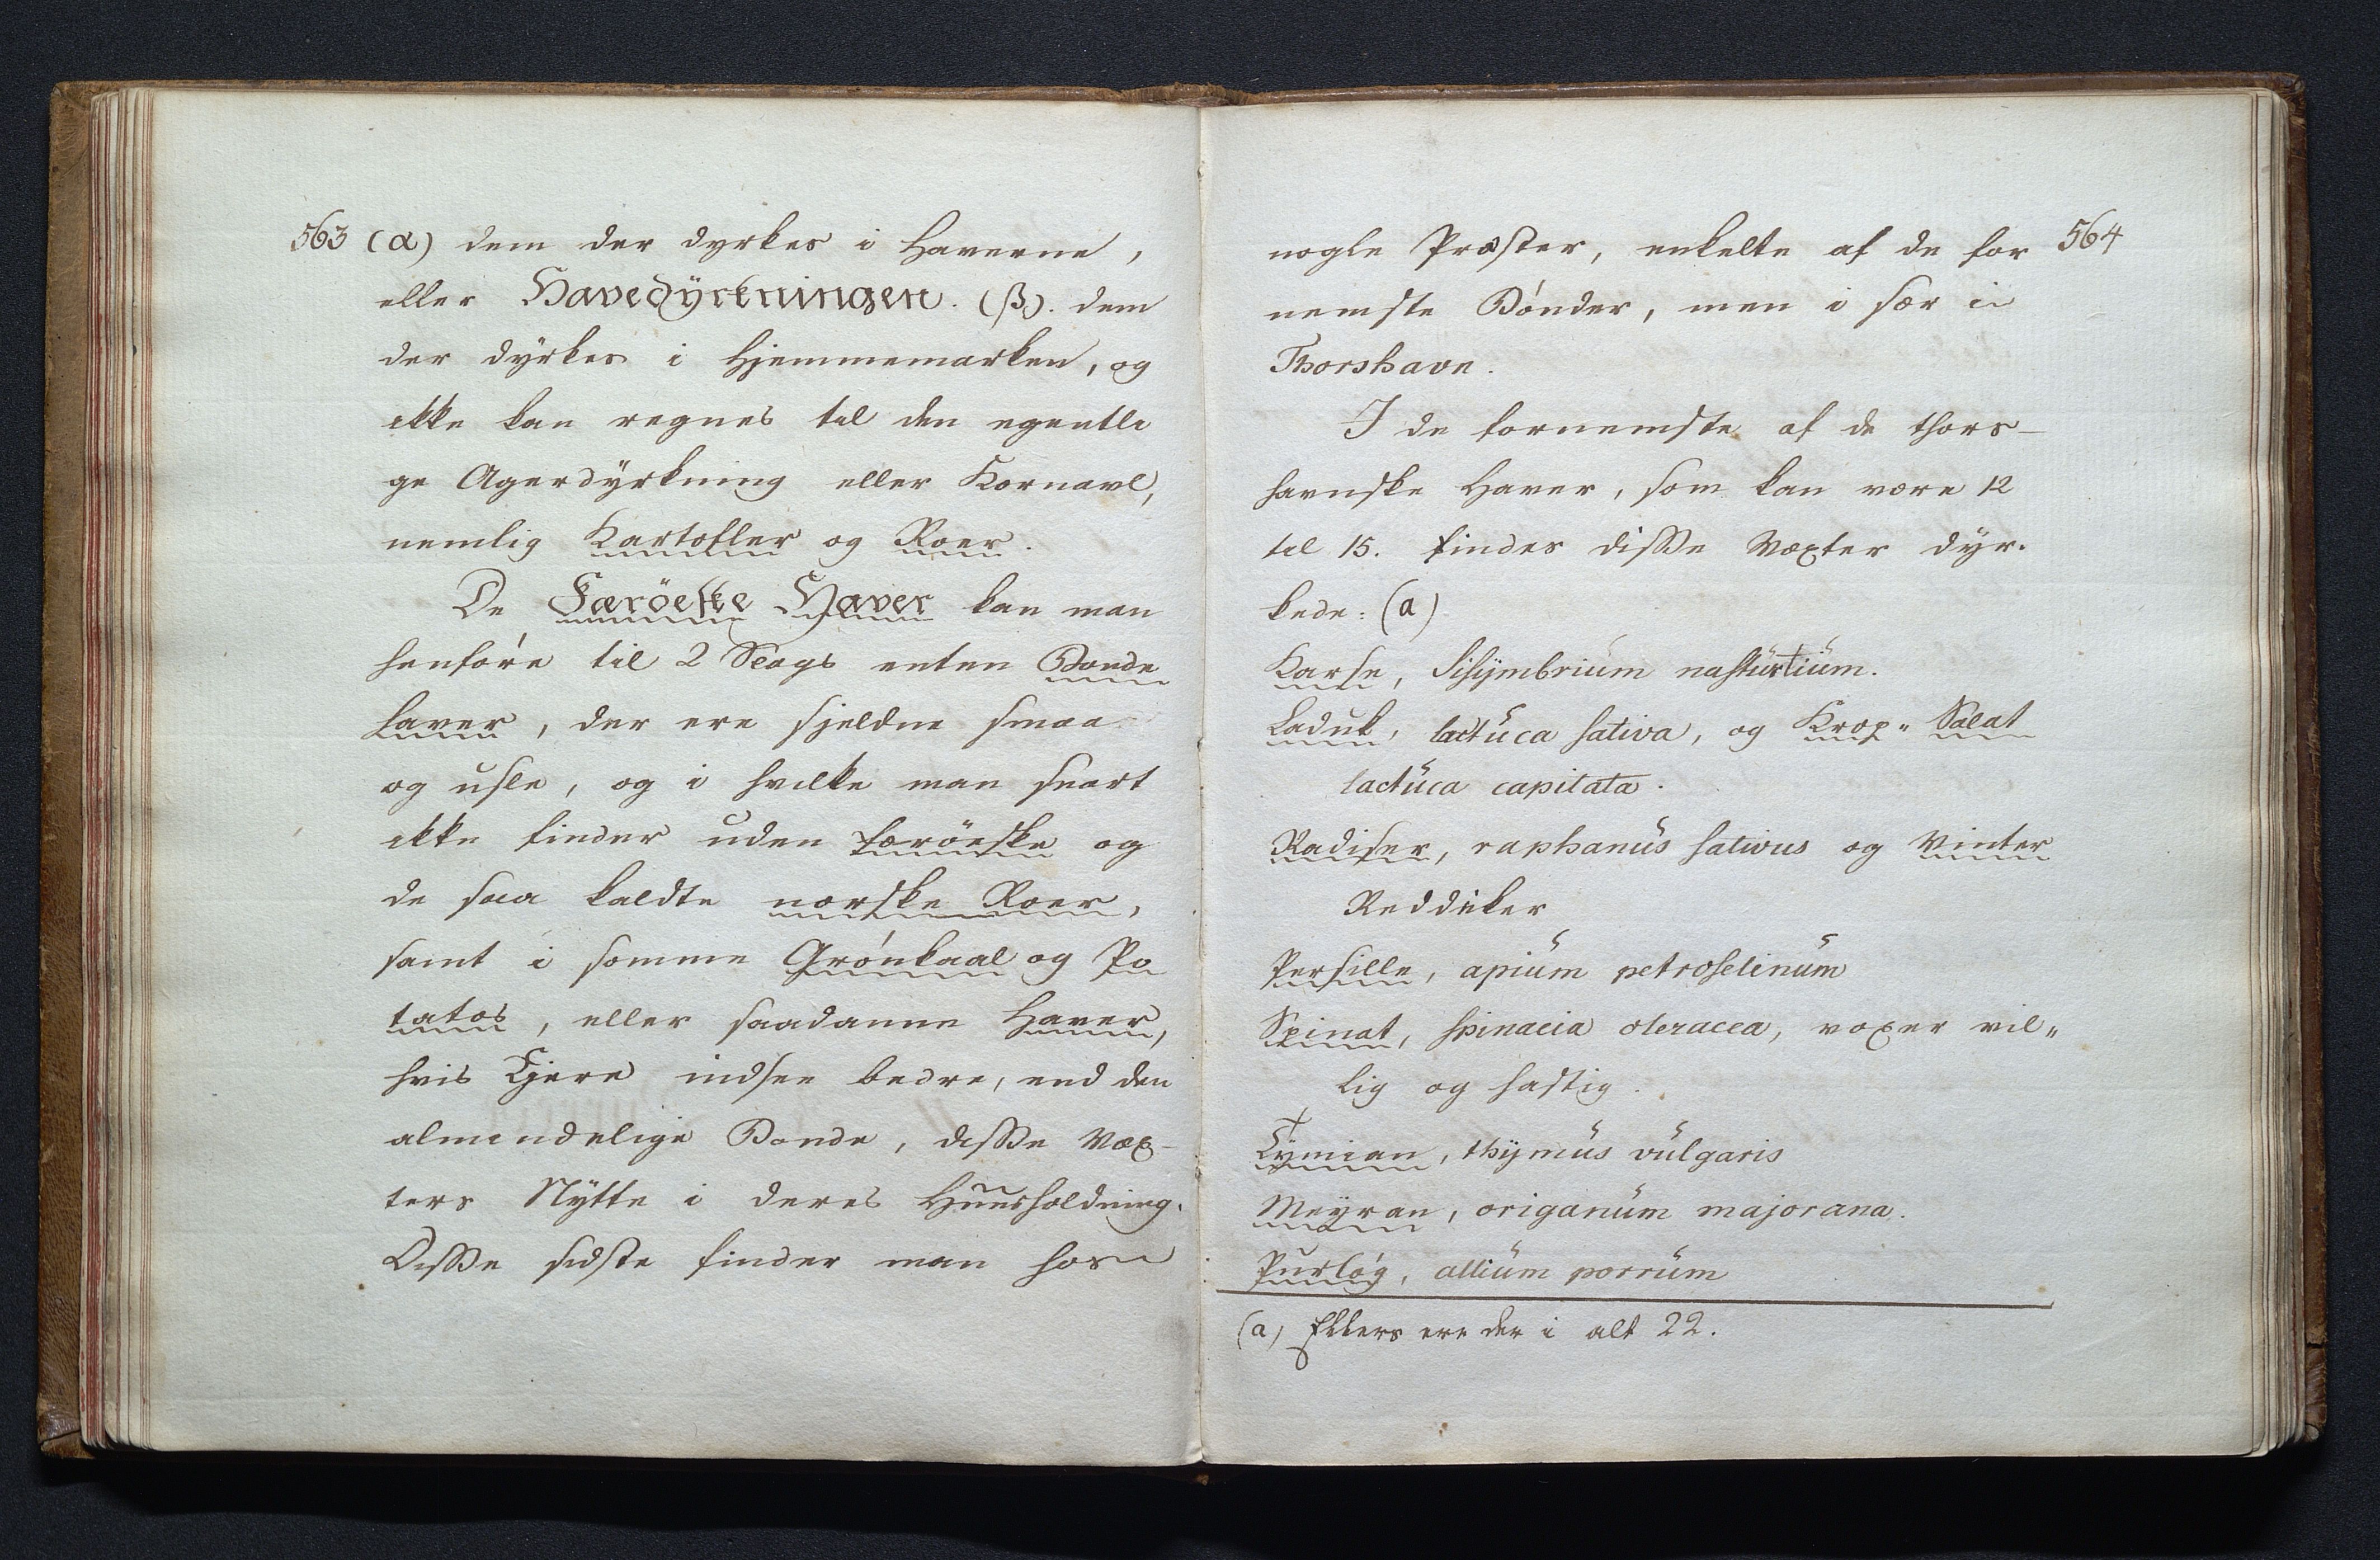 563 (α) dem der dyrkes i Haverne,
eller Havedÿrkningen. (β). dem
der dÿrkes i Hjemmemarken, og
ikke kan regnes til den egentli
ge Agerdÿrkning eller Kornavl,
nemlig Kartofler og Roer.
De Færöeske Haver kan man
henføre til 2 Slags enten Bonde
haver, der ere sjeldne smaa
og usle, og i hvilke man snart
ikke finder uden færöeske og
de saa kaldte norske Roer,
samt i somme Grønkaal og Po
tatos, eller saadanne Haver,
hvis Ejere indsee bedre, end den
almindelige Bonde, disse Væx-
ters Nÿtte i deres Huusholdning.
Disse sidste finder man hos
nogle Præster, enkelte af de for 564
nemste Bønder, men i sær i
Thorshavn.
I de fornemste af de thors-
havnske Haver, som kan være 12
til 15. findes disse Væxter dÿr-
kede: (a)
Karse, Sisÿmbrium nasturtium.
Laduk, lactuca sativa, og Krop" Salat
lactuca capitata.
Radiser, raphanus sativus og Vinter
Reddiker
Persille, apium petroselinum
Spinat, spinacia oleracea, voxer vil"
lig og hastig.
Tÿmian, thÿmus vulgaris
Meÿran, origanum majorana.
Purløg, allium porrum
(a) Ellers ere der i alt 22.